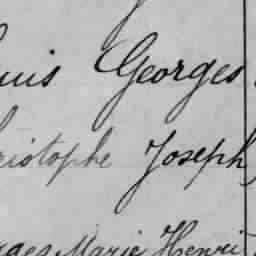 uis Georges
ristophe Joseph,
rges Marie Henri